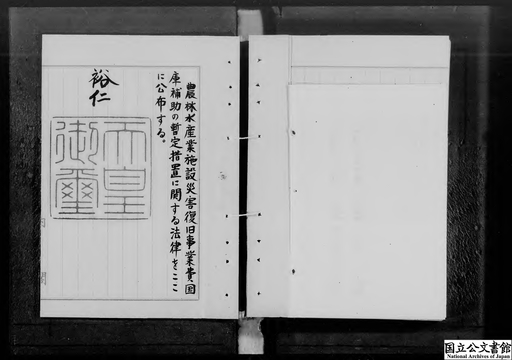 農林水産業施設災害復旧事業費国
庫補助の暫定措置に関する法律をここ
に公布する。
裕仁
天皇
御璽
国立公文書館
National Archives of Japan